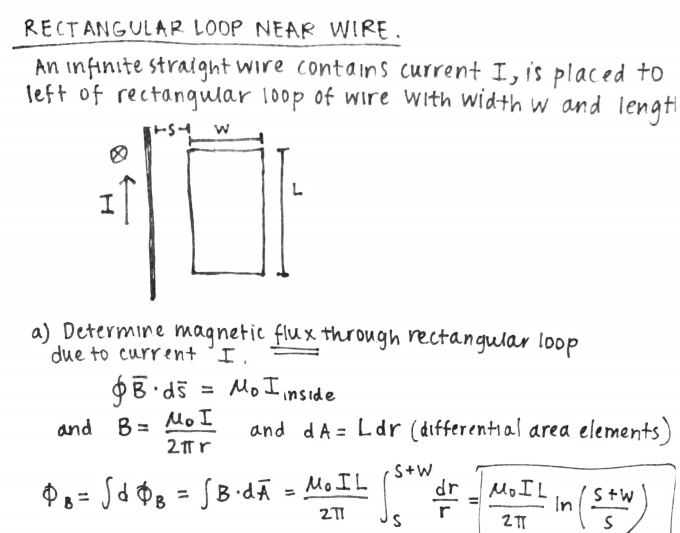 RECTANGULAR LOOP NEAR WIRE.
An infinite straight wire contains current I, is placed to
left of rectangular loop of wire with width w and lengt
⊗ s w
I L
a) Determine magnetic flux through rectangular loop
due to current I.
∮ B̄ · ds̄ = μ₀ I inside
and B = μ₀I / 2πr and dA = Ldr (differential area elements)
Φ_B = ∫dΦ_B = ∫B·dĀ = μ₀IL / 2π ∫_S^{S+W} dr/r = μ₀IL / 2π ln(S+W / S)